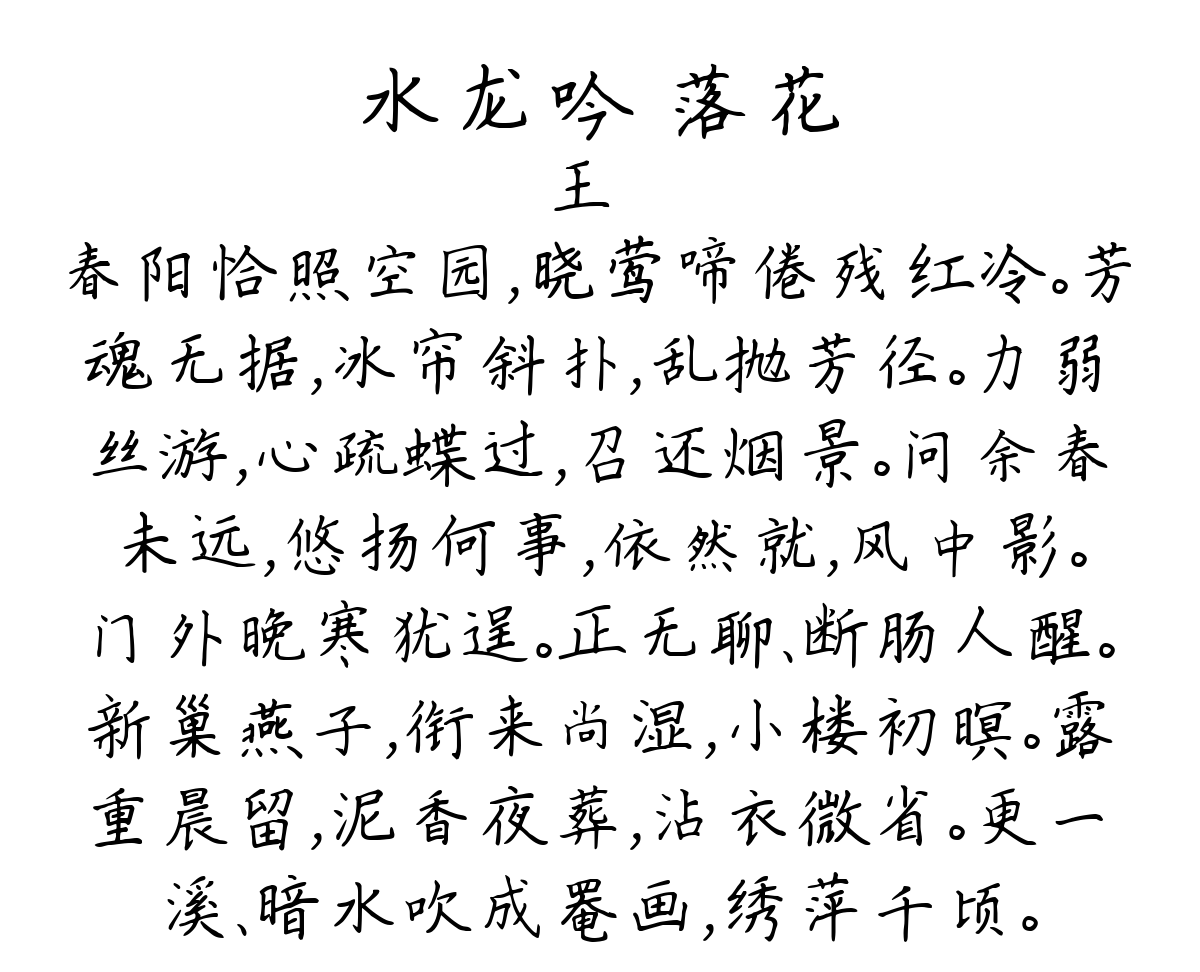 水龙吟 落花
王
春阳恰照空园,晓莺啼倦残红冷。芳
魂无据,冰帘斜扑,乱抛芳径。力弱
丝游,心疏蝶过,召还烟景。问余春
未远,悠扬何事,依然就,风中影。
门外晚寒犹逞。正无聊、断肠人醒。
新巢燕子,衔来尚湿,小楼初暝。露
重晨留,泥香夜葬,沾衣微省。更一
溪、暗水吹成罨画,绣萍千顷。